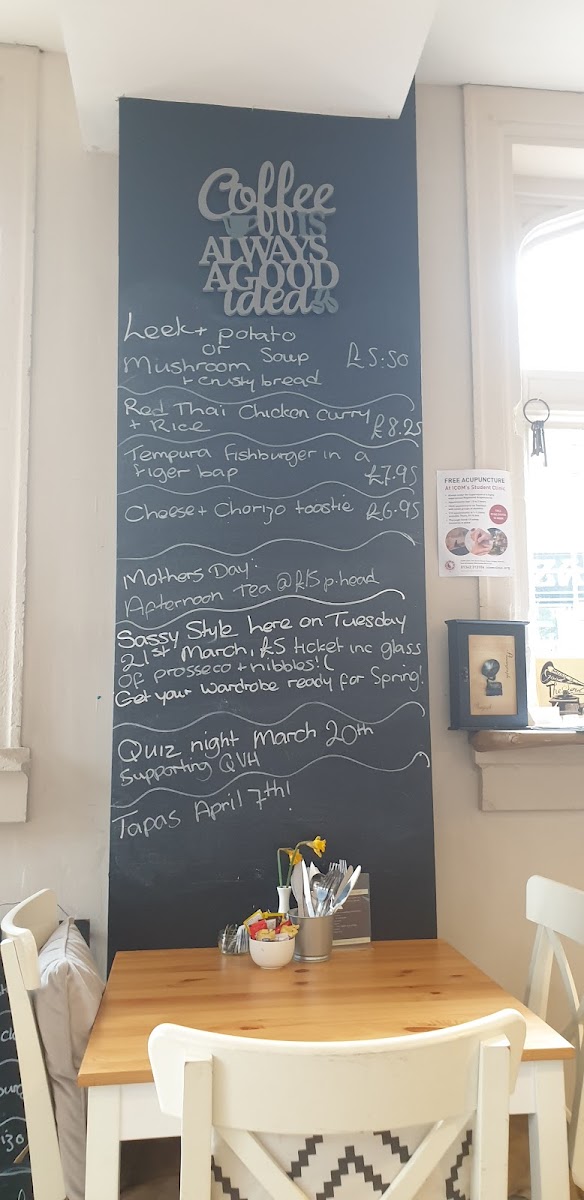 Coffee
IS
ALWAYS
A GOOD
idea
Leek + potato
or
Mushroom Soup £5:50
+ crusty bread
Red Thai Chicken Curry
+ Rice £8.25
Tempura fishburger in a
figer bap £7.95
Cheese + Chorizo toastie £6.95
Mothers Day:
Afternoon Tea @ £15 p.head
Sassy Style here on Tuesday
21st March, £5 ticket inc glass
of prosseco + nibbles!
Get your wardrobe ready for Spring!
Quiz night March 20th
Supporting QVH
Tapas April 7th!
FREE ACUPUNCTURE
At ICOM's Student Clinic